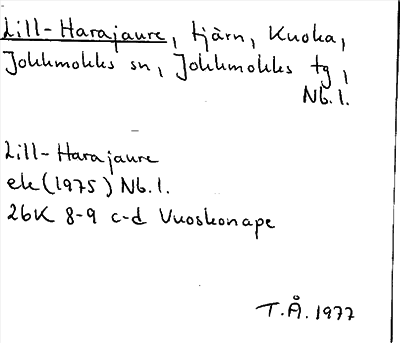 Lill-Harajaure, tjärn, Kuoka,
Jokkmokks sn, Jokkmokks tg,
Nb.l.
Lill-Harajaure
ek (1975) Nb.l.
26K 8-9 c-d Vuoskonape
T.Å. 1977